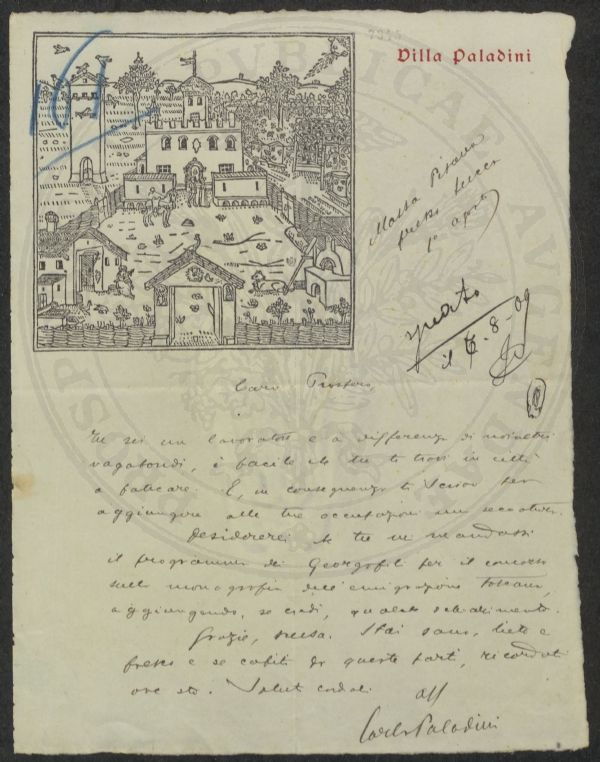 7315
Villa Paladini
Massa Pisana
presso Lucca
1° agosto
il 6-8-09
Caro Prospero,
Tu sei un lavoratore e a differenza di noialtri
vagabondi, è facile che tu ti trovi in città
a faticare. E, in conseguenza ti scrivo per
aggiungere alle tue occupazioni una seccatura.
Desidererei che tu mi mandassi
il programma dei Georgofili per il concorso
sulla monografia dell'emigrazione toscana,
aggiungendo, se credi, qualche schiarimento.
Grazie, scusa. Stai sano, lieto e
fresco e se capiti da queste parti, ricordati
ove sto. Saluti cordiali
aff
Carlo Paladini